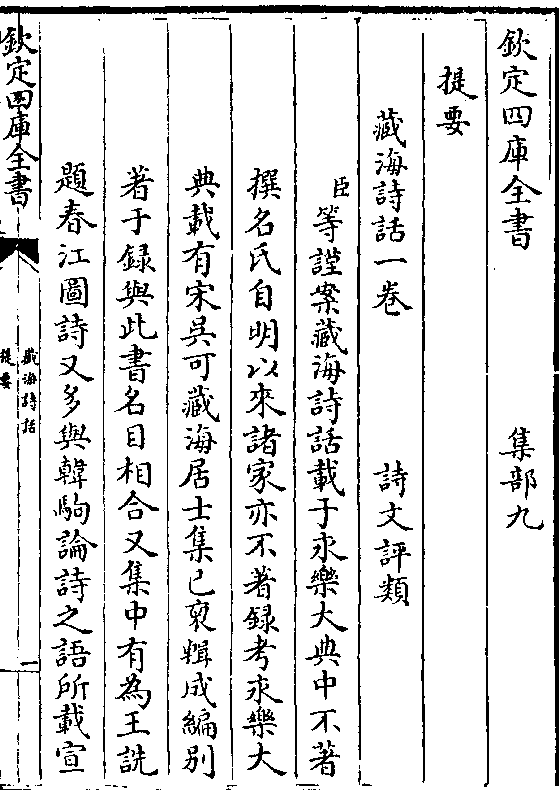 欽定四庫全書　集部九
提要
藏海詩話一卷　詩文評類
臣等謹案藏海詩話載于永樂大典中不著
撰名氏自明以來諸家亦不著録考永樂大
典載有宋吳可藏海居士集已裒輯成編別
著于録與此書名目相合又集中有為王詵
題春江圖詩又多與韓駒論詩之語所載宣
欽定四庫全書
藏海詩話
提要
一